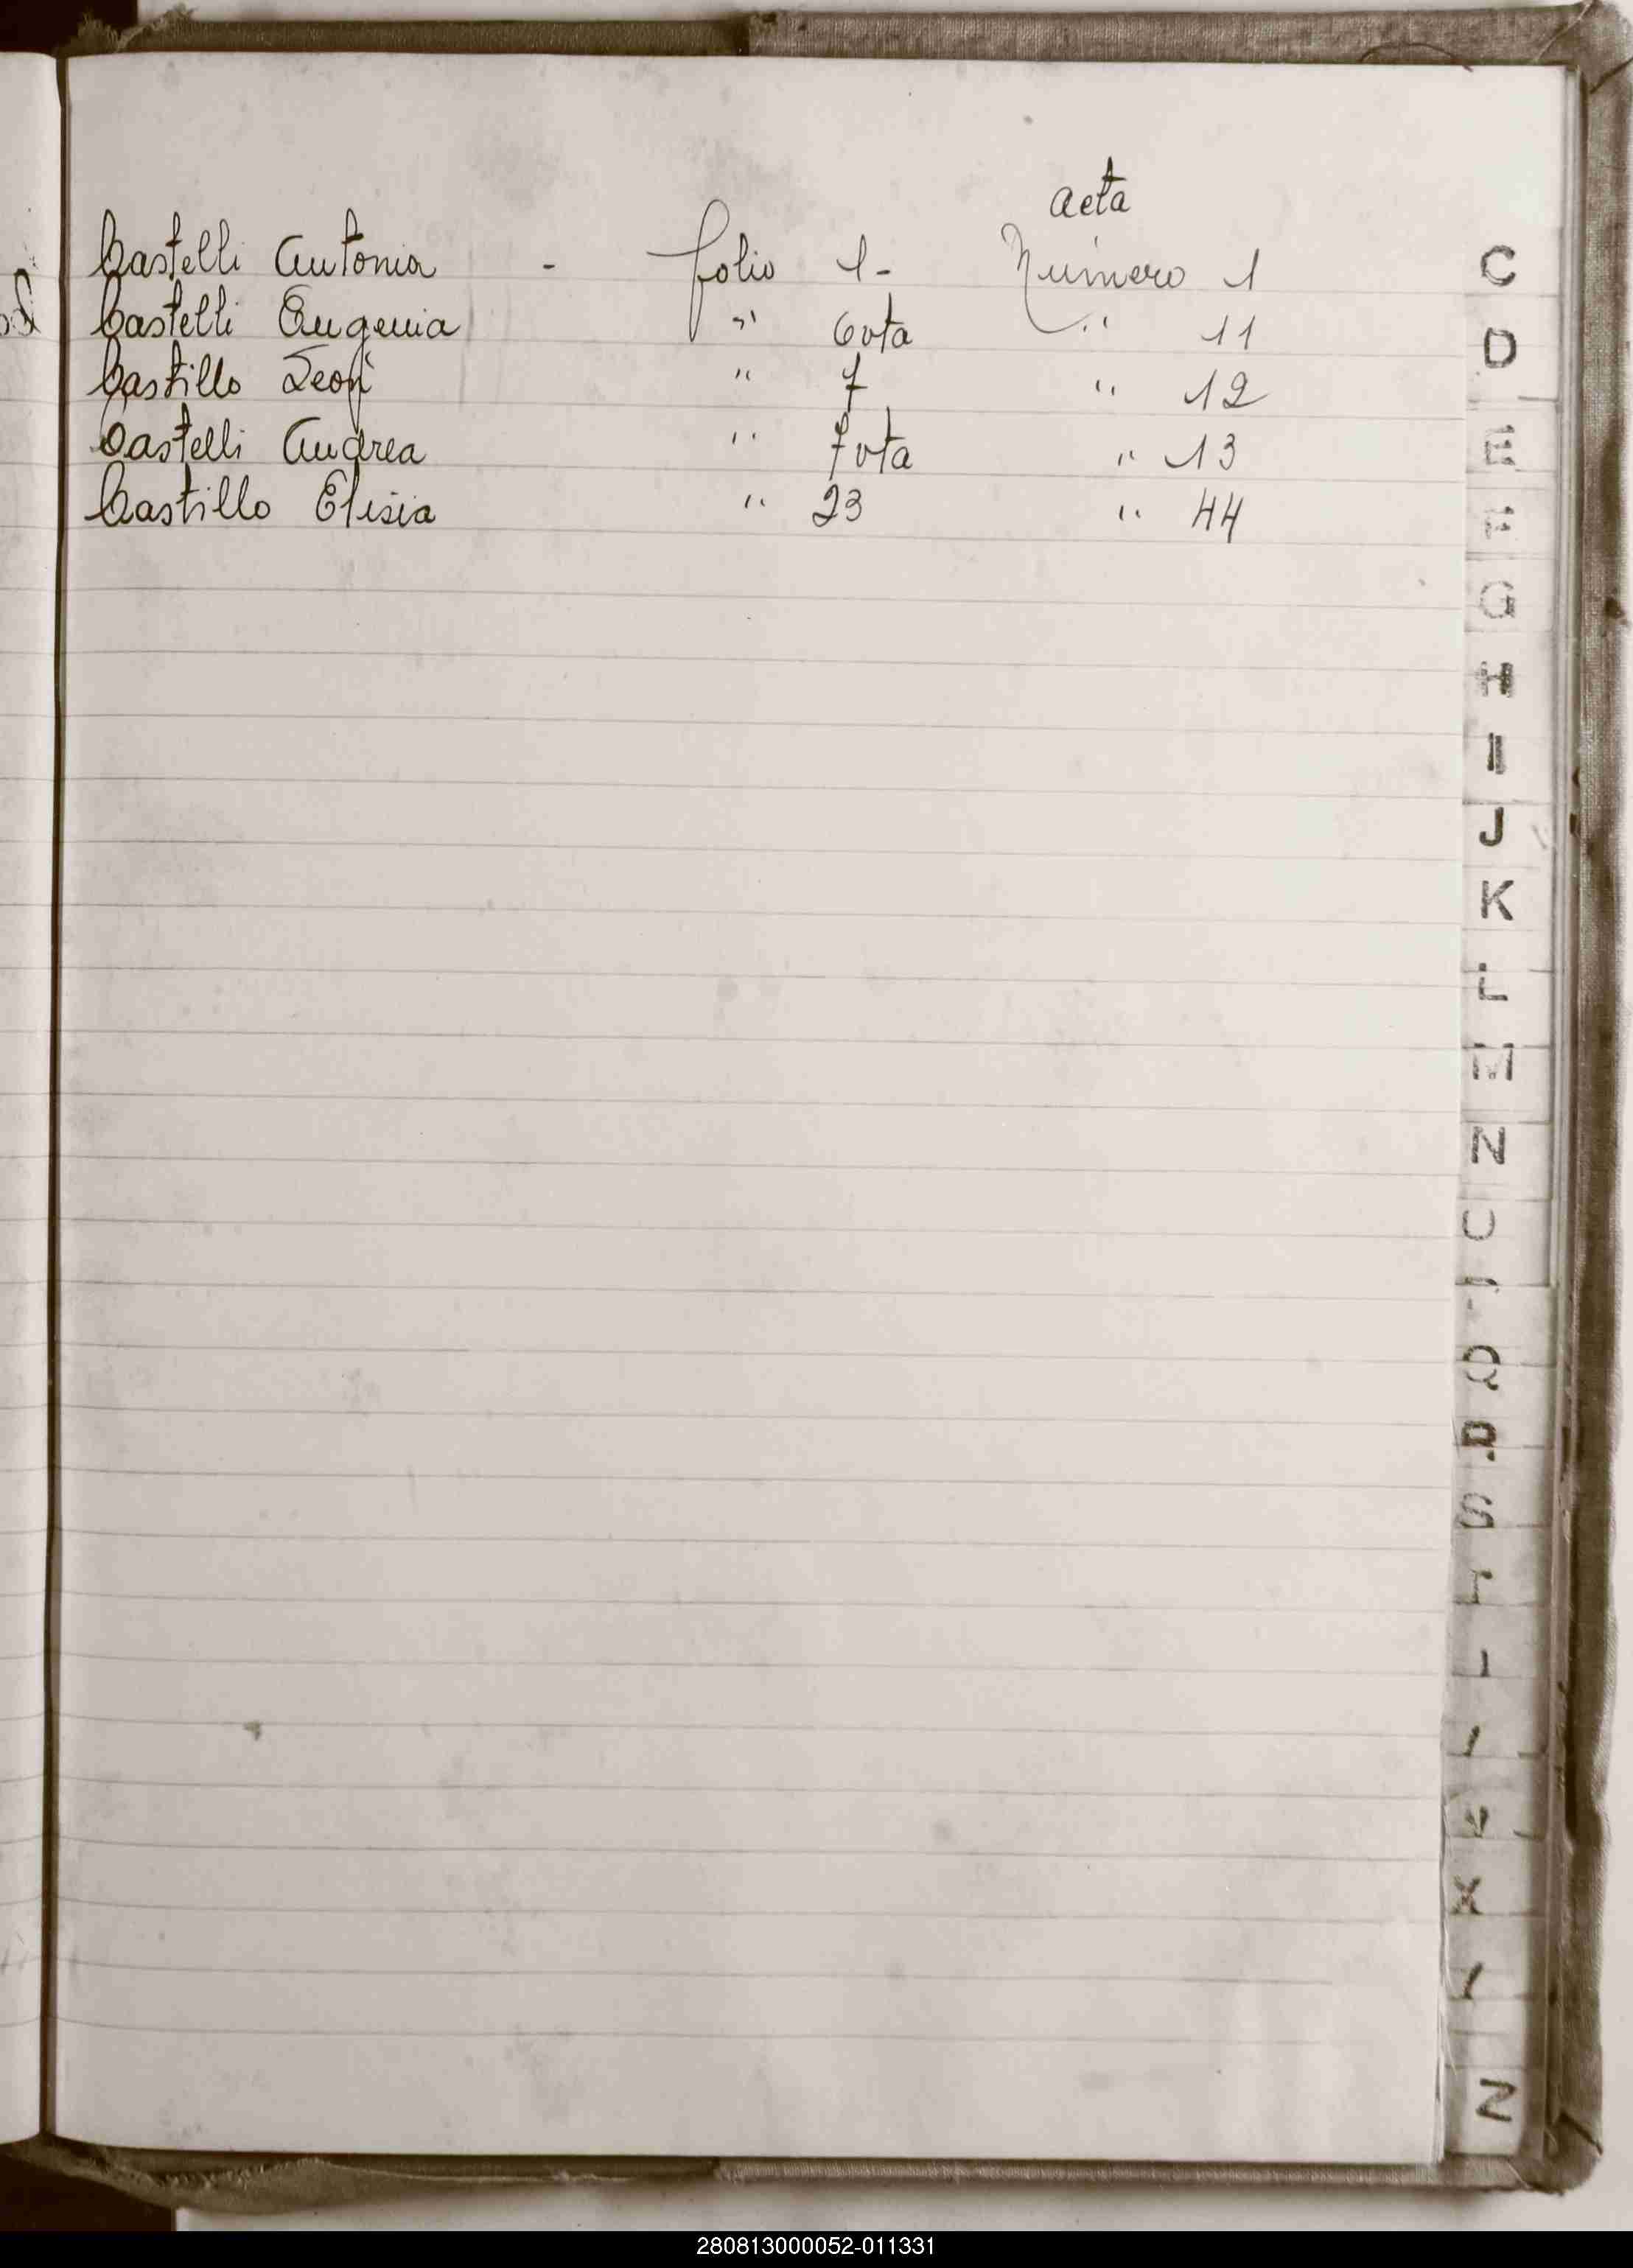 acta
Castelli Antonia - folio 1- Número 1
Castelli Eugenia " 6 vta " 11
Castillo León " 7 " 12
Castelli Andrea " 7 vta " 13
Castillo Elisia " 23 " 44
C
D
E
F
G
H
I
J
K
L
M
N
Q
R
S
T
X
Z
280813000052-011331